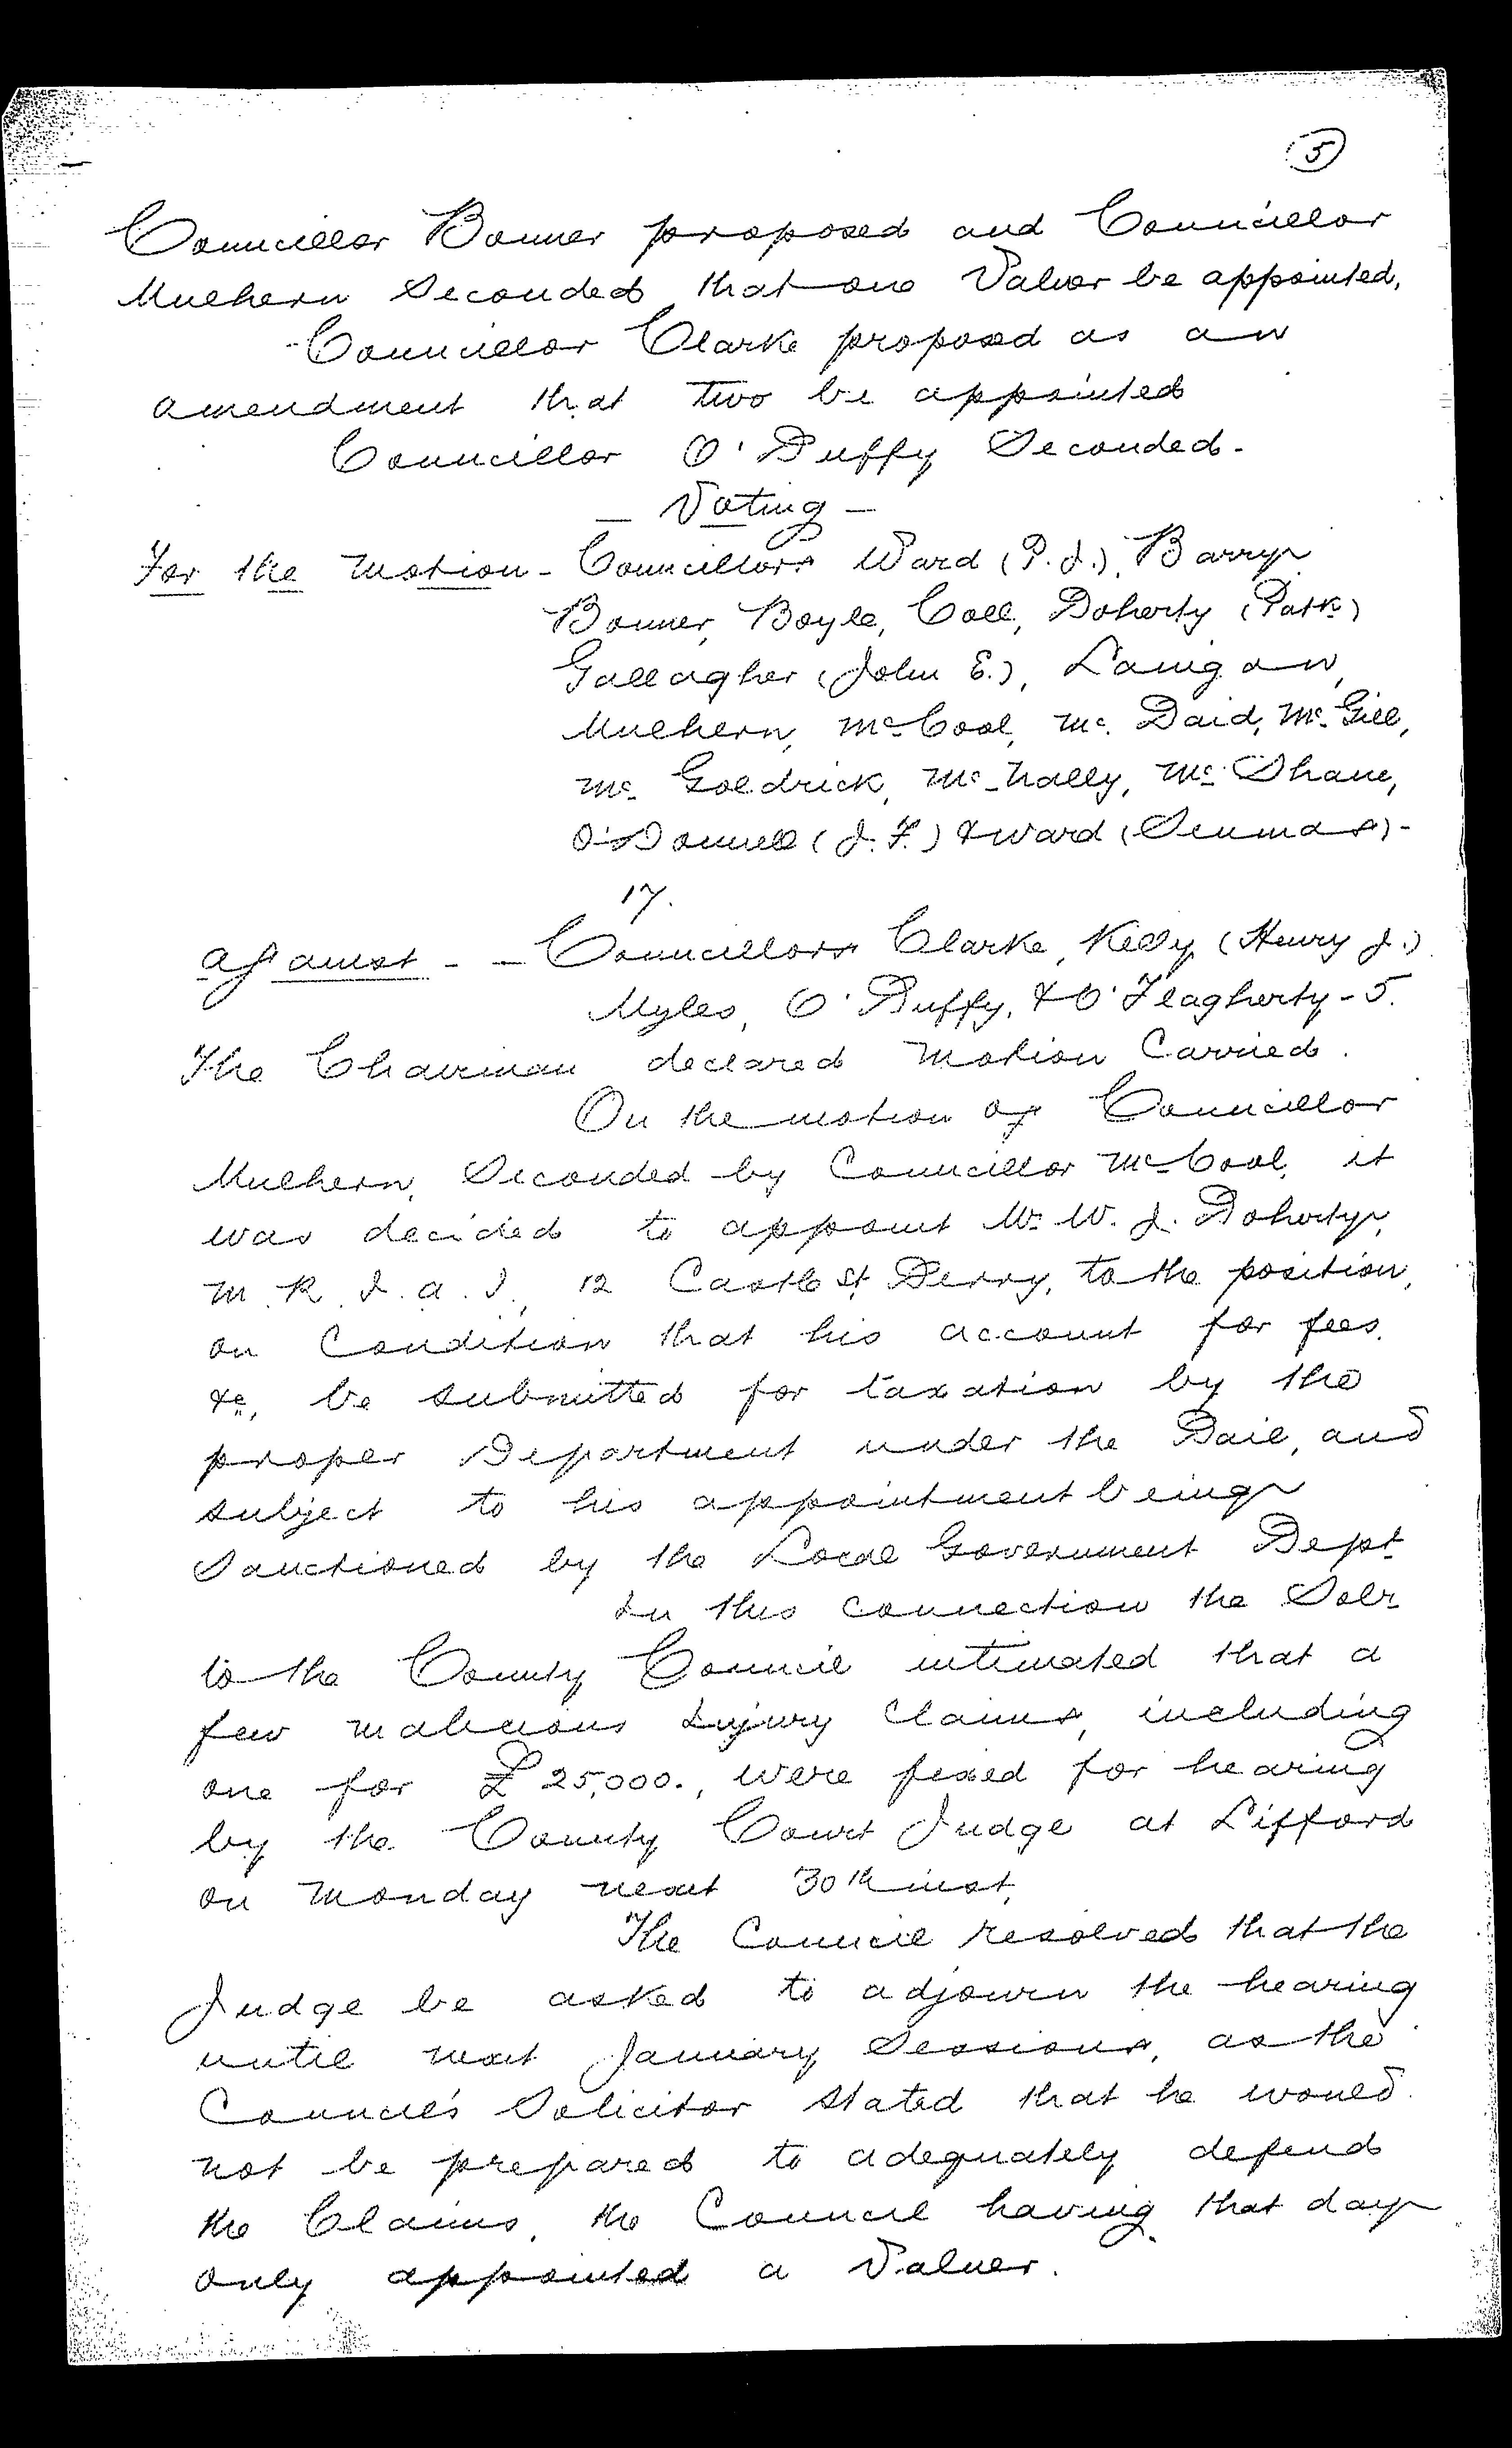 5
Councillor Bonner proposed and Councillor
Mulhern Seconded that one Valuer be appointed,
Councillor Clarke proposed as an
amendment that two be appointed
Councillor O'Duffy Seconded -
- Voting -
For the motion - Councillors Ward (P.J.), Barry
Bonner, Boyle, Coll, Doherty (Patk)
Gallagher (John E.), Lanigan,
Mulhern, McCool, Mc. Daid, Mc. Gill,
Mc. Goldrick, McNally, Mc. Shane,
O'Donnell (J.F.) & Ward (Seumas) -
17.
Against - - Councillors Clarke, Kelly (Henry J.)
Myles, O'Duffy, & O'Flagherty - 5.
The Chairman declared motion Carried.
On the motion of Councillor
Mulhern, Seconded by Councillor McCool, it
was decided to appoint Mr. W. J. Doherty,
M. R. I. A. I., 12 Castle St, Derry, to the position,
on Condition that his account for fees,
&c, be submitted for taxation by the
proper Department under the Dail, and
subject to his appointment being
Sanctioned by the Local Government Dept
In this connection the Solr
to the County Council intimated that a
few malicious Injury Claims, including
one for £25,000., were fixed for hearing
by the County Court Judge at Lifford
on Monday next 30th inst,
The Council resolved that the
Judge be asked to adjourn the hearing
until next January Sessions, as the
Council's Solicitor stated that he would
not be prepared to adequately defend
the Claims, the Council having that day
only appointed a Valuer.